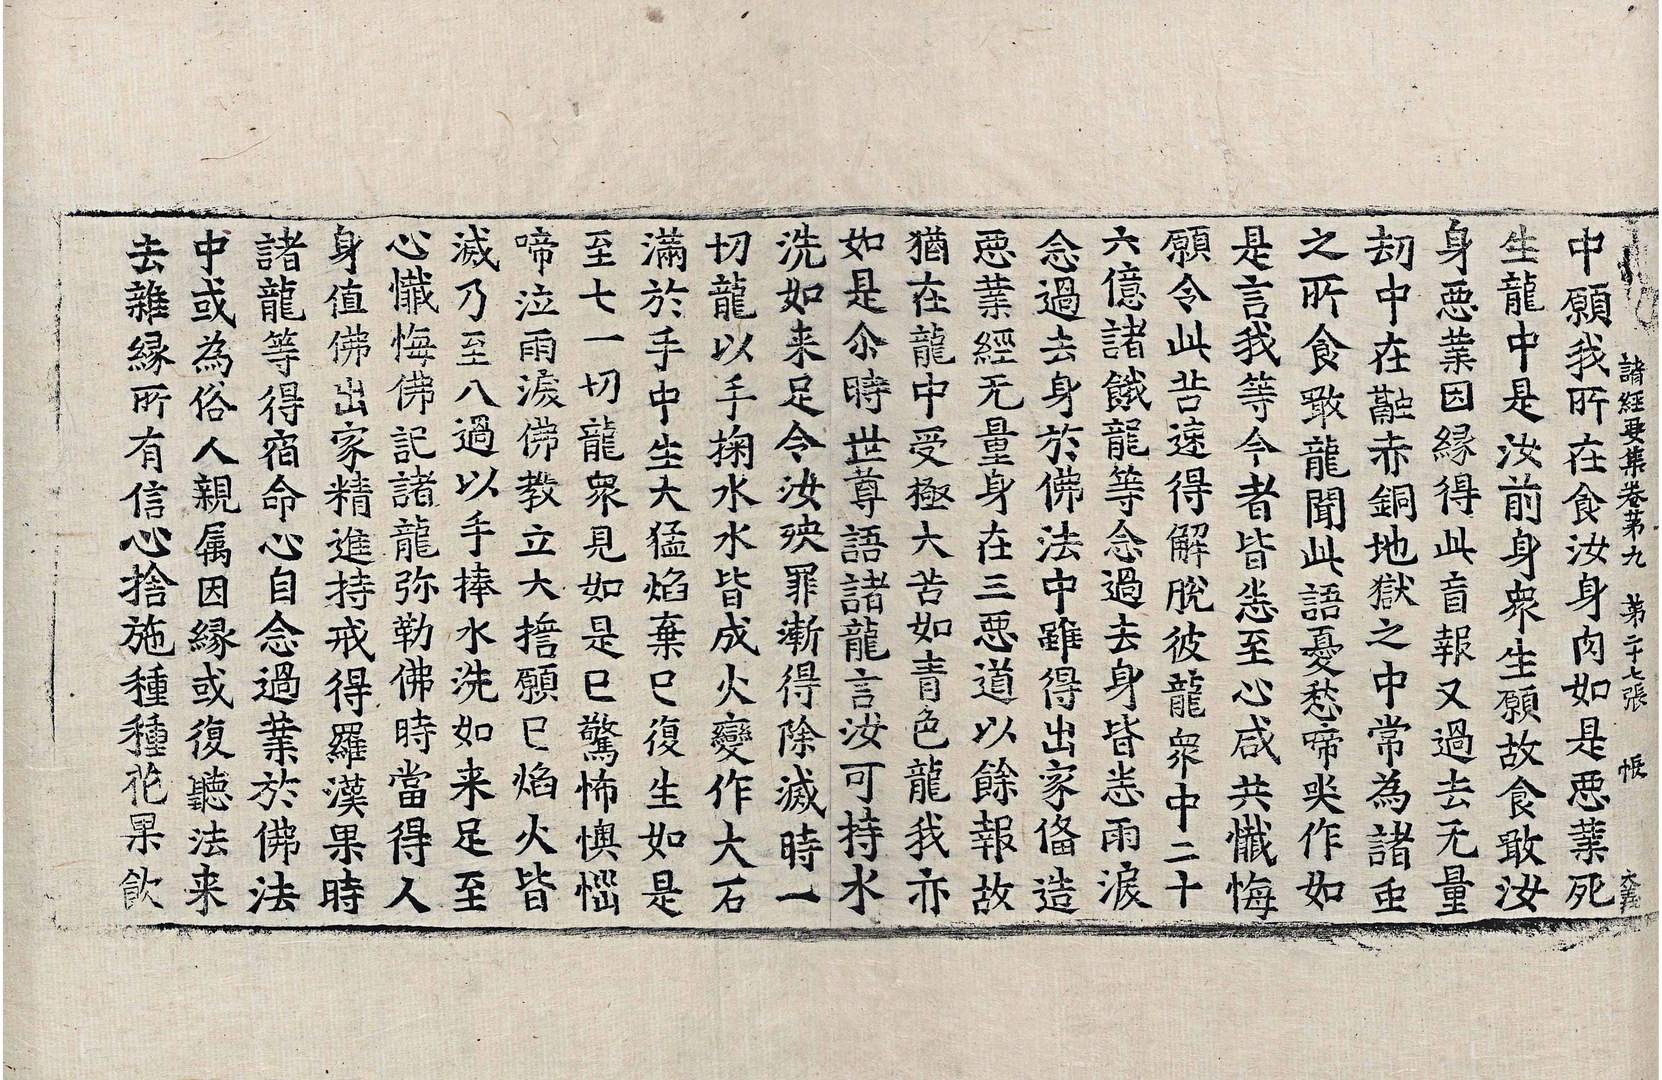 諸經要集卷第九　第二十七張　悵　大義
中願我所在食汝身肉如是惡業死
生龍中是汝前身衆生願故食敢汝
身惡業因緣得此盲報又過去无量
劫中在融赤銅地獄之中常為諸虫
之所食敢龍聞此語憂愁啼哭作如
是言我等今者皆悉至心咸共懺悔
願令此苦速得解脫彼龍衆中二十
六億諸餓龍等念過去身皆悉雨淚
念過去身於佛法中雖得出家俻造
惡業經无量身在三惡道以餘報故
猶在龍中受極大苦如青色龍我亦
如是尒時世尊語諸龍言汝可持水
洗如来足令汝殃罪漸得除滅時一
切龍以手掬水水皆成火變作大石
滿於手中生大猛焰棄巳復生如是
至七一切龍衆見如是巳驚怖懊惱
啼泣雨淚佛教立大擔願巳焰火皆
滅乃至八過以手捧水洗如来足至
心懺悔佛記諸龍弥勒佛時當得人
身值佛出家精進持戒得羅漢果時
諸龍等得宿命心自念過業於佛法
中或為俗人親属因緣或復聽法来
去雜緣所有信心捨施種種花果飲